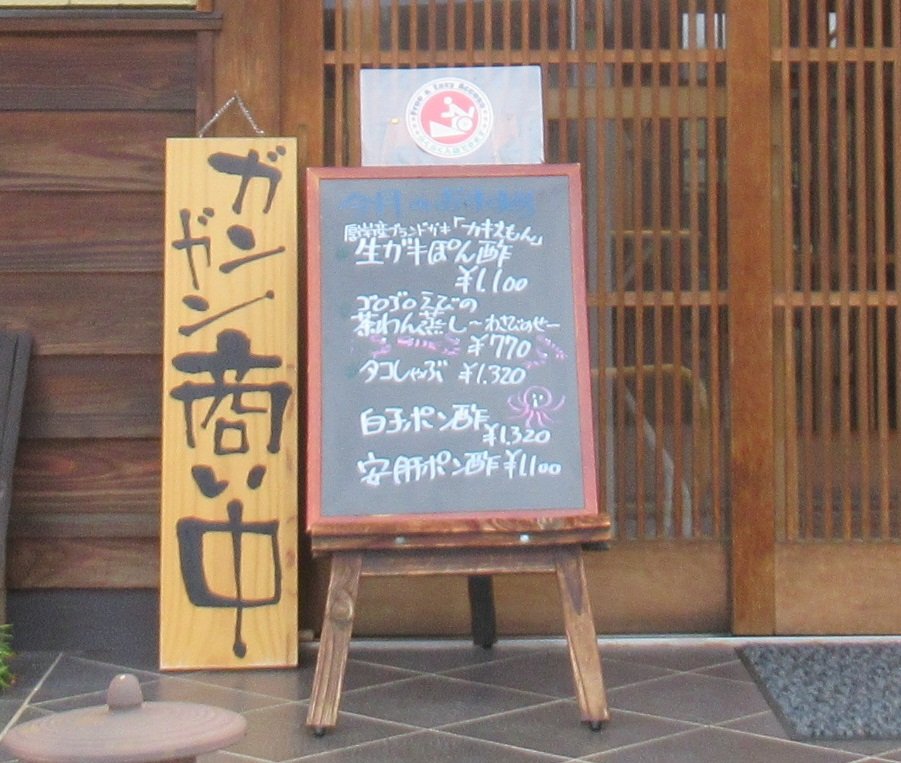 ガンガン商い中
Free & Easy Access
厚岸産ブランドガキ「カキえもん」
生ガキぽん酢
¥1,100
ゴロゴロえびの
茶わん蒸し～わさびのせ～
¥770
タコしゃぶ ¥1,320
白子ポン酢
¥1,320
安肝ポン酢 ¥1,100